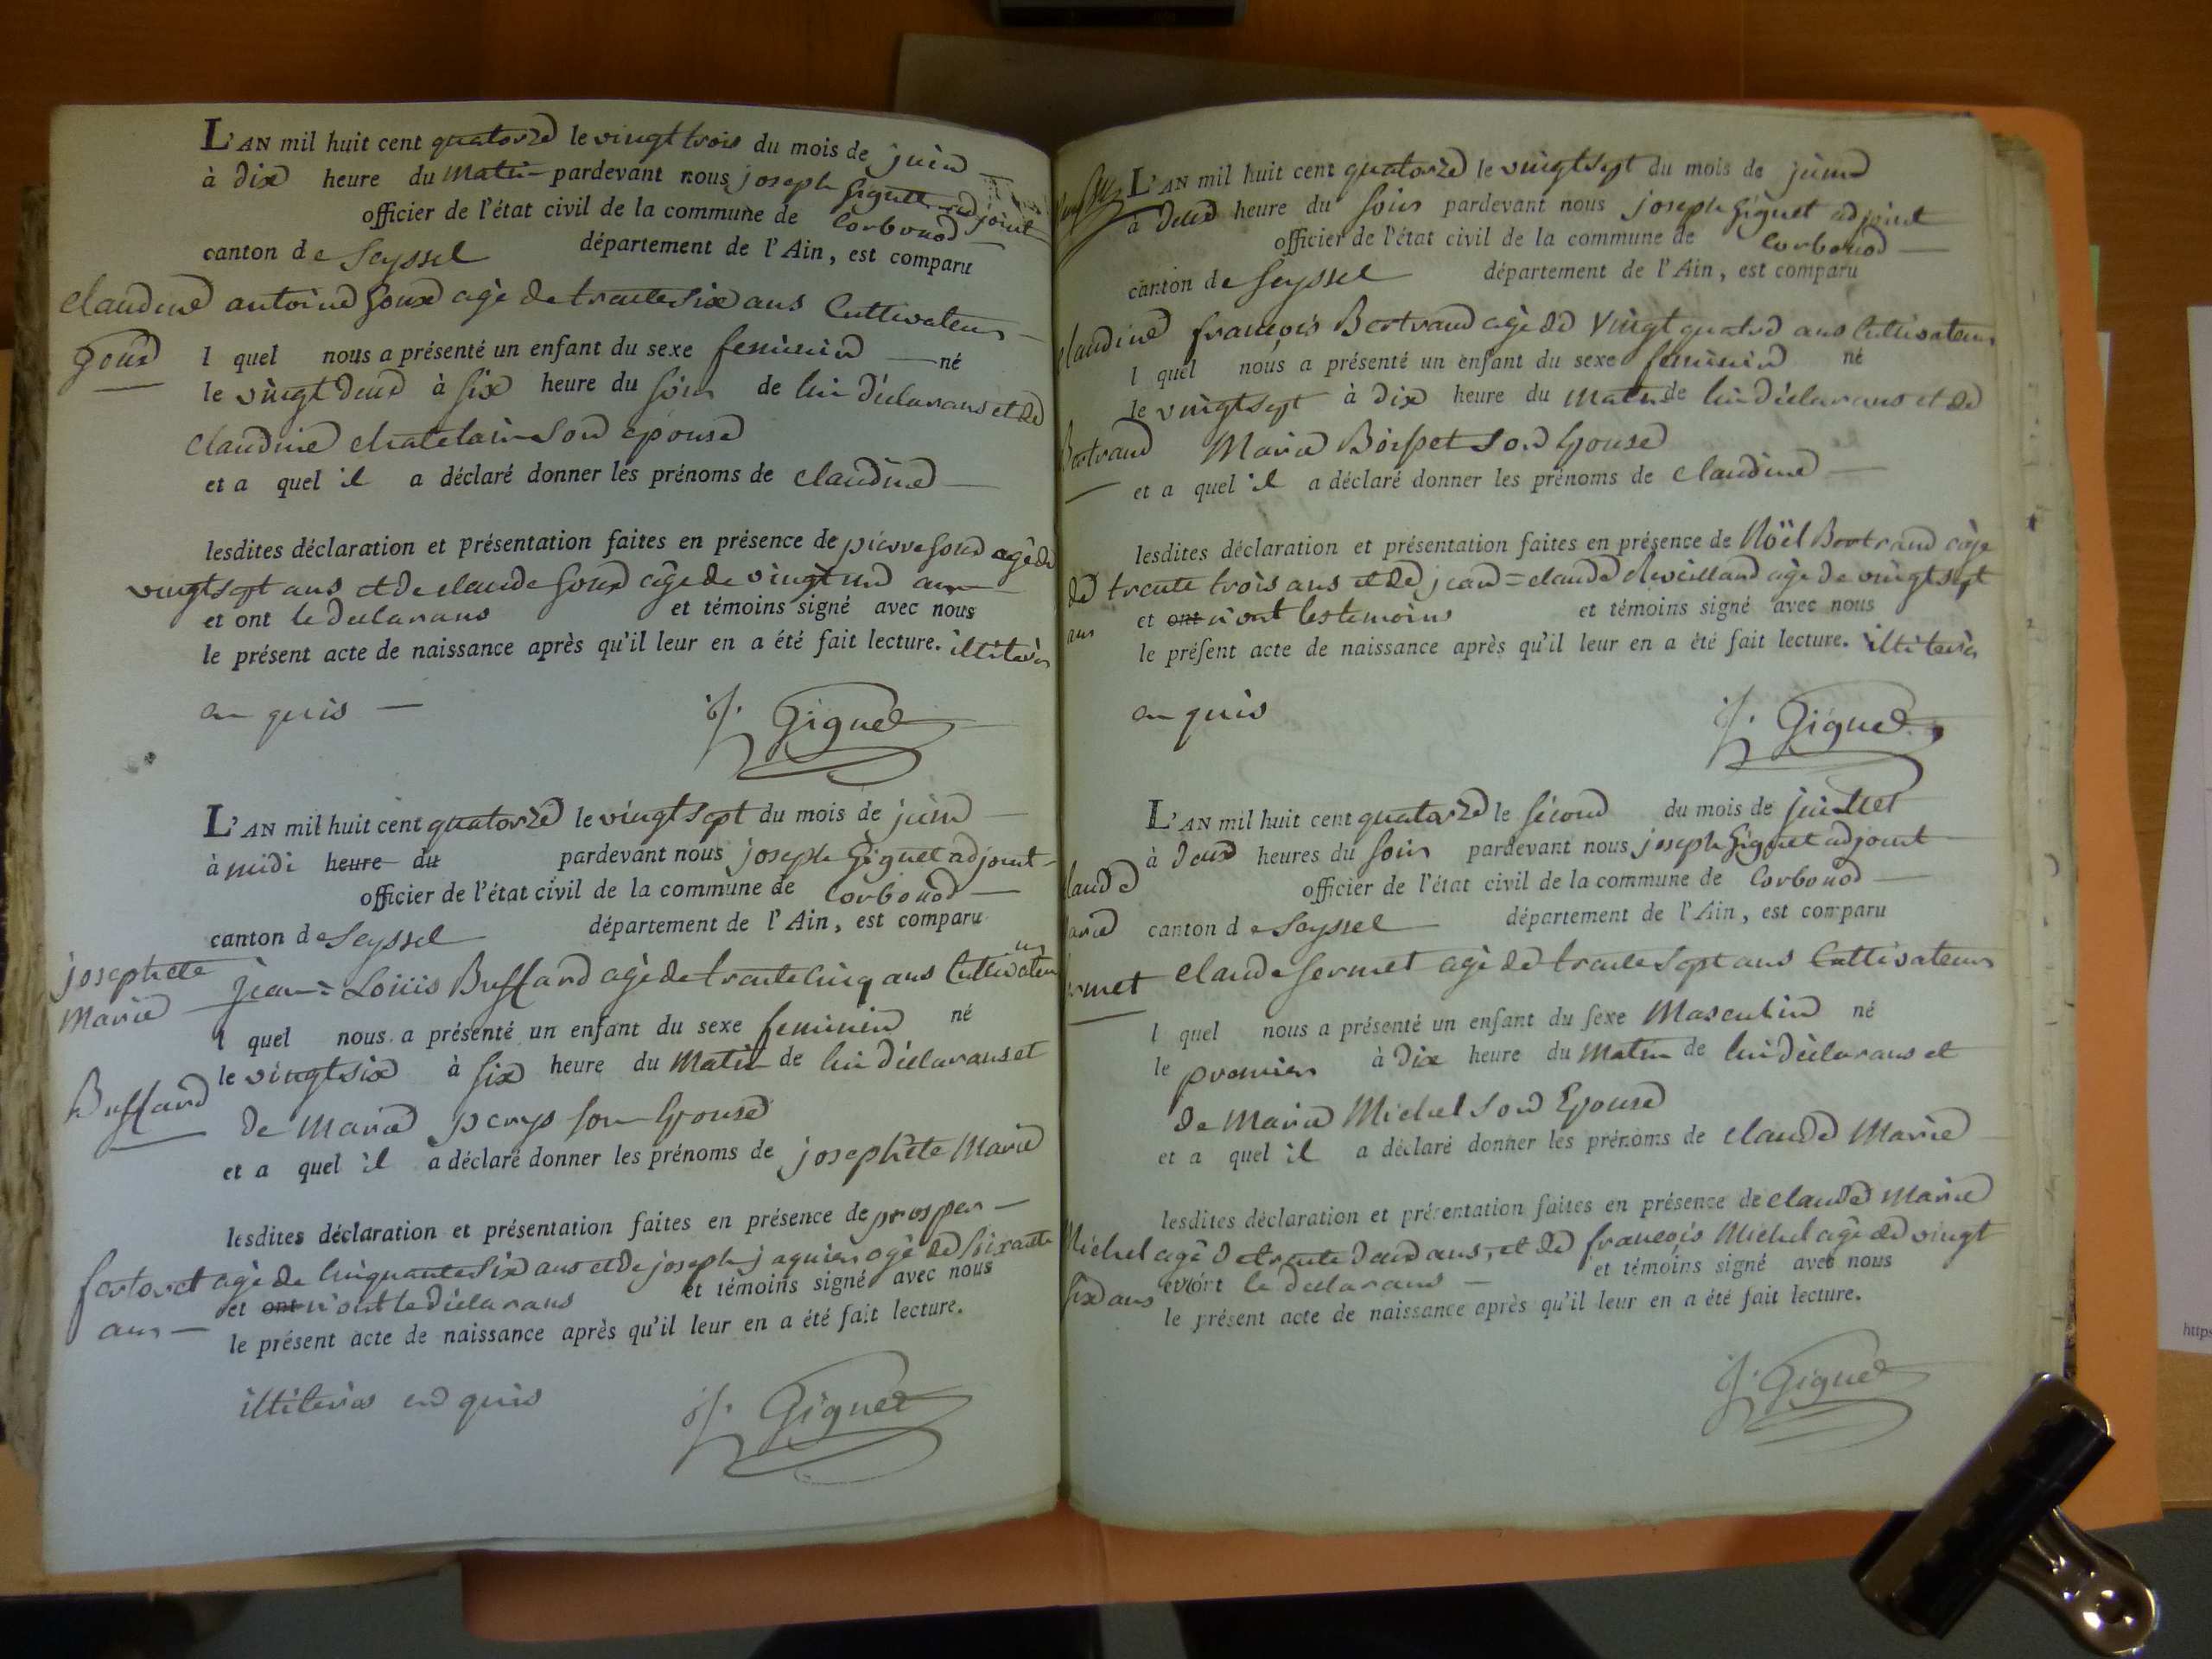 L'AN mil huit cent quatorze le vingt trois du mois de juin
à dix heure du Matin pardevant nous joseph Giguet adjoint
officier de l'état civil de la commune de Corbonod
canton de Seyssel département de l'Ain, est comparu
Claudine antoine goux agé de trente six ans Cultivateur
goux l quel nous a présenté un enfant du sexe feminin né
le vingt deux à six heure du soir de lui déclarans et de
Claudine Chatelain son épouse
et a quel il a déclaré donner les prénoms de claudine
lesdites déclaration et présentation faites en présence de pierre goux agé de
vingt sept ans et de claude goux agé de vingt un ans
et ont le declarans et témoins signé avec nous
le présent acte de naissance après qu'il leur en a été fait lecture. illiteré
en quis
j. Giguet
L'AN mil huit cent quatorze le vingt sept du mois de juin
à midi heure du pardevant nous joseph Giguet adjoint
officier de l'état civil de la commune de Corbonod
canton de Seyssel département de l'Ain, est comparu
josephete
Marie jean = Louis Buffard agé de trente cinq ans Cultivateur
l quel nous a présenté un enfant du sexe feminin né
Buffard le vingt six à six heure du Matin de lui déclarans et
de Marie perys son Epouse
et a quel il a déclaré donner les prénoms de josephete Marie
lesdites déclaration et présentation faites en présence de prosper
fortoret agé de Cinquante six ans et de joseph jaquier agé de soixante
ans et ont n'ont le déclarans et témoins signé avec nous
le présent acte de naissance après qu'il leur en a été fait lecture.
illiterés en quis
j. Giguet
L'AN mil huit cent quatorze le vingt sept du mois de juin
à deux heure du soir pardevant nous joseph Giguet adjoint
officier de l'état civil de la commune de Corbonod
canton de Seyssel département de l'Ain, est comparu
Claudine françois Bertrand agé de Vingt quatre ans Cultivateur
l quel nous a présenté un enfant du sexe feminin né
le vingt sept à dix heure du matin de lui déclarans et de
Bertrand Marie Boisset son Epouse
et a quel il a déclaré donner les prénoms de claudine
lesdites déclaration et présentation faites en présence de Noël Bertrand agé
de trente trois ans et de jean = claude Reveilland agé de vingt sept
ans et ont n'ont les temoins et témoins signé avec nous
le présent acte de naissance après qu'il leur en a été fait lecture. illiterés
en quis
j. Giguet
L'AN mil huit cent quatorze le second du mois de juillet
à deux heures du soir pardevant nous joseph Giguet adjoint
laude officier de l'état civil de la commune de Corbonod
arie canton de Seyssel département de l'Ain, est comparu
rmet Claude fermet agé de trente sept ans Cultivateur
l quel nous a présenté un enfant du sexe Masculin né
le premier à dix heure du Matin de lui déclarans et
de Marie Michel son Epouse
et a quel il a déclaré donner les prénoms de claude Marie
lesdites déclaration et présentation faites en présence de claude Marie
Michel agé de trente deux ans, et de françois Michel agé de vingt
six ans et n'ont le declarans et témoins signé avec nous
le présent acte de naissance après qu'il leur en a été fait lecture.
j. Giguet
https